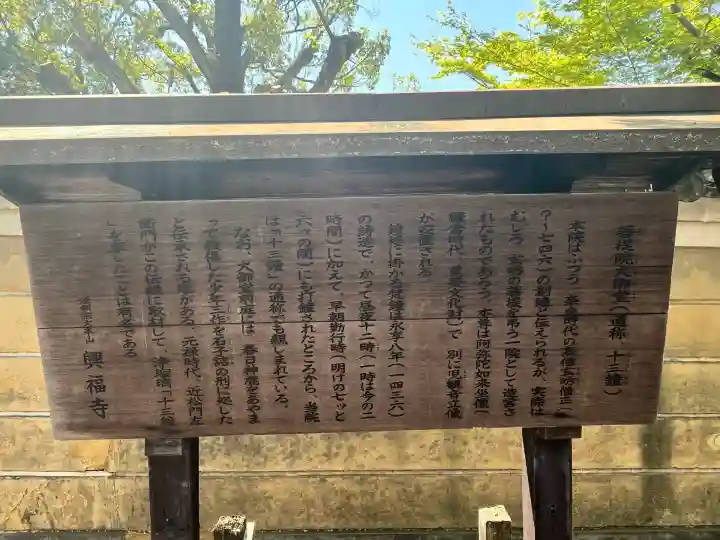 菩提院大御堂(通称 十三鐘)
本院はふつう、奈良時代の高僧玄昉僧正(
?〜七四六)の創建と伝えられるが、実際は
むしろ、玄昉の菩提を弔う一院として造営さ
れたものであろう。本尊は阿弥陀如来坐像(
鎌倉時代、重要文化財)で、別に児観音立像
が安置される。
鐘楼に掛かる梵鐘は永享八年(一四三六)
の鋳造で、かつて昼夜十二時(一時は今の二
時間)に加えて、早朝勤行時(明けの七ッと
六ッの間)にも打鐘されたところから、当院
は「十三鐘」の通称でも親しまれている。
なお、大御堂前庭には、春日神鹿をあやま
って殺傷した少年三作を石子詰の刑に処した
と伝承される塚がある。元禄時代、近松門左
衛門がこの伝説に取材して、浄瑠璃「十三鐘
」を草したことは有名である。
法相宗大本山 興福寺